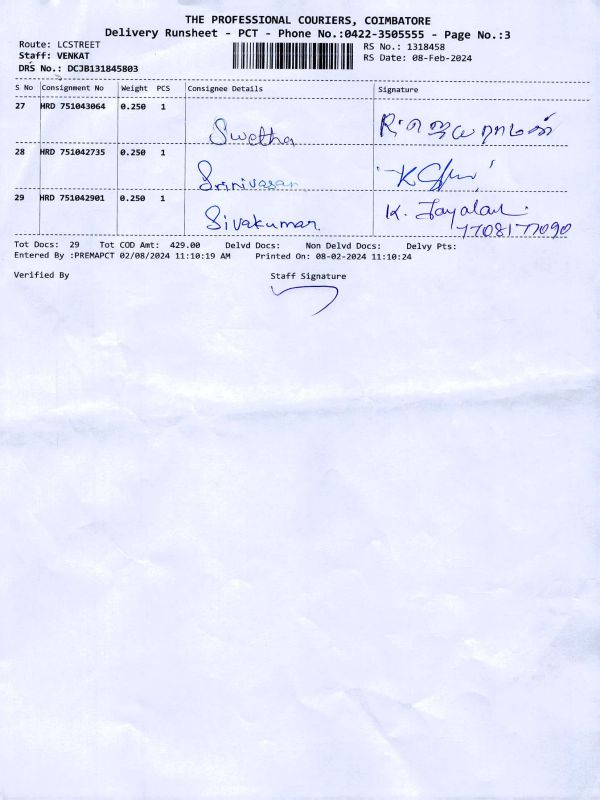 THE PROFESSIONAL COURIERS, COIMBATORE
Delivery Runsheet - PCT - Phone No.:0422-3505555 - Page No.:3
Route: LCSTREET
Staff: VENKAT
DRS No.: DCJB131845803
RS No.: 1318458
RS Date: 08-Feb-2024
S No Consignment No Weight PCS Consignee Details Signature
27 HRD 751043064 0.250 1
Swetha
28 HRD 751042735 0.250 1
Srinivasan
29 HRD 751042901 0.250 1
Sivakumar
K. Jayalan
7708177090
Tot Docs: 29 Tot COD Amt: 429.00 Delvd Docs: Non Delvd Docs: Delvy Pts:
Entered By :PREMAPCT 02/08/2024 11:10:19 AM Printed On: 08-02-2024 11:10:24
Verified By Staff Signature